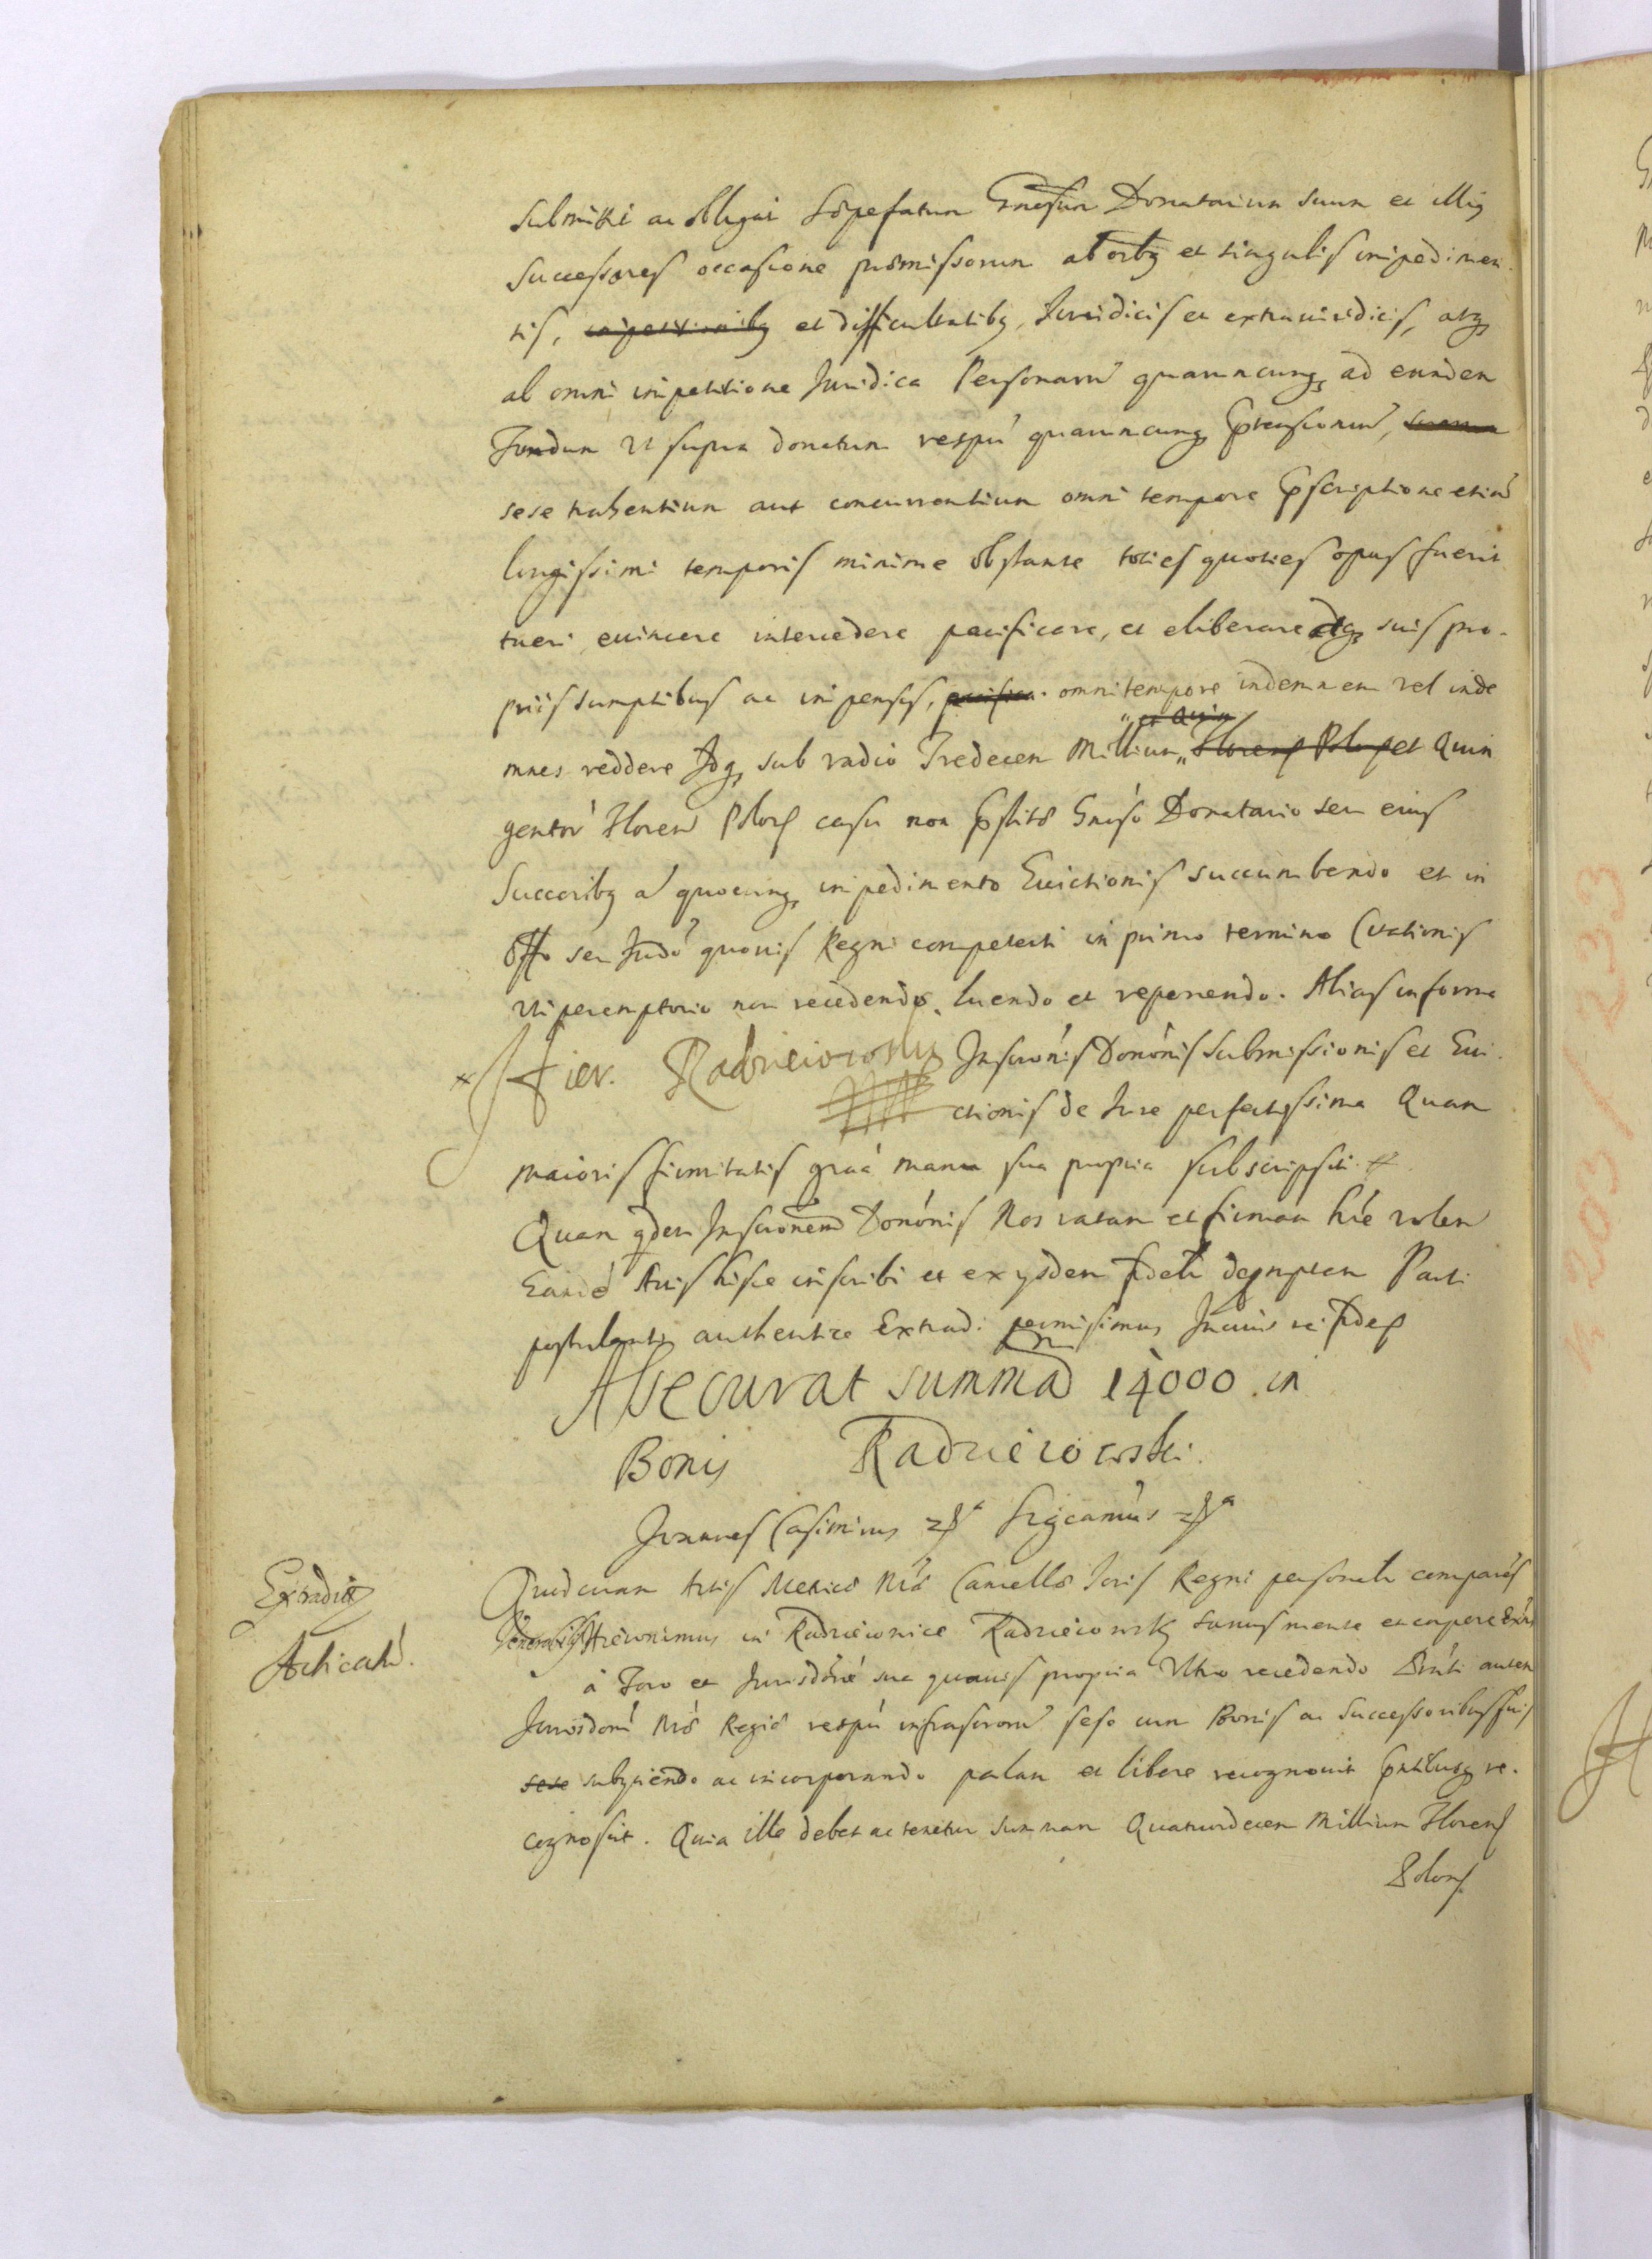 submitti ac obligat Sepefatum Gnosum Donatarium suum et illiq
Successores occasione promissorum ab oibq et singulis impedimen
tis, impetitionibq et difficultatibq, Juridicis et extrajuridicis, atq
ab omni impetitione Juridica Personarũ quarumcunq ad eundem
Fundum Vt supra donatum respũ quarumcunq Prtensionũ,
sese trahentium aut concurrentium omni tempore Prscriptione etiã
longissimi temporis minime obstante toties quoties opus fuerit
tueri evincere intercedere pacificare, et eliberare Idq suis pro-
priis sumptibus ac impensis, pacifica omni tempore indemnem vel inde
et Quin
mnes reddere Idq sub vadio Tredecem Millium Floreñ Polon et Quin
gentorũ Floreñ Polon casu non Prstito Gnoso Donatario seu eius
Succoribq a quocunq impedimento Euictionis succumbendo et in
Offo seu Judo quovis Regni competenti in primo termino Citationis
Vti peremptorio non recedendo, luendo et reponendo. Alias in forma
Hier. Radzieiowsky Inscrónis Donónis Submissionis et Eui-
ctionis de Jure perfectissima Quam
maioris firmitatis gráa manu sua propria subscripsit
Quam qdem Inscronem Donónis Nos ratam et firmam hře volen
Eandẽ Actis hisce inscribi et ex ijsdem fideli depromptam Parti
postulanti authentice Extradi permisimus In cuius rei fidem
Assecurat summã 14000 in
Bonis Radzieiowski.
Joannes Casimirus Sigcamus
Extradit
Acticatũ.
Quod coram Actis Metrices Nrõ Cancellõ Joris Regni personalr comparẽs
Generosus Hieronimus in Radzieiowice Radzieiowsky sanus mente et corpore exñs
á Foro et Jurisdõne sua quavis propria Vltro recedendo Prñti autem
Jurisdoni Nrõ Regiõ respũ infrascrorum sese cum Bonis ac Successoribus suis
sese subijciendo ac incorporando palam et libere recognovit Prntibusq re-
cognoscit. Quia ille debet ac tenetur summam Quatuordecem Millium Floren
Polon